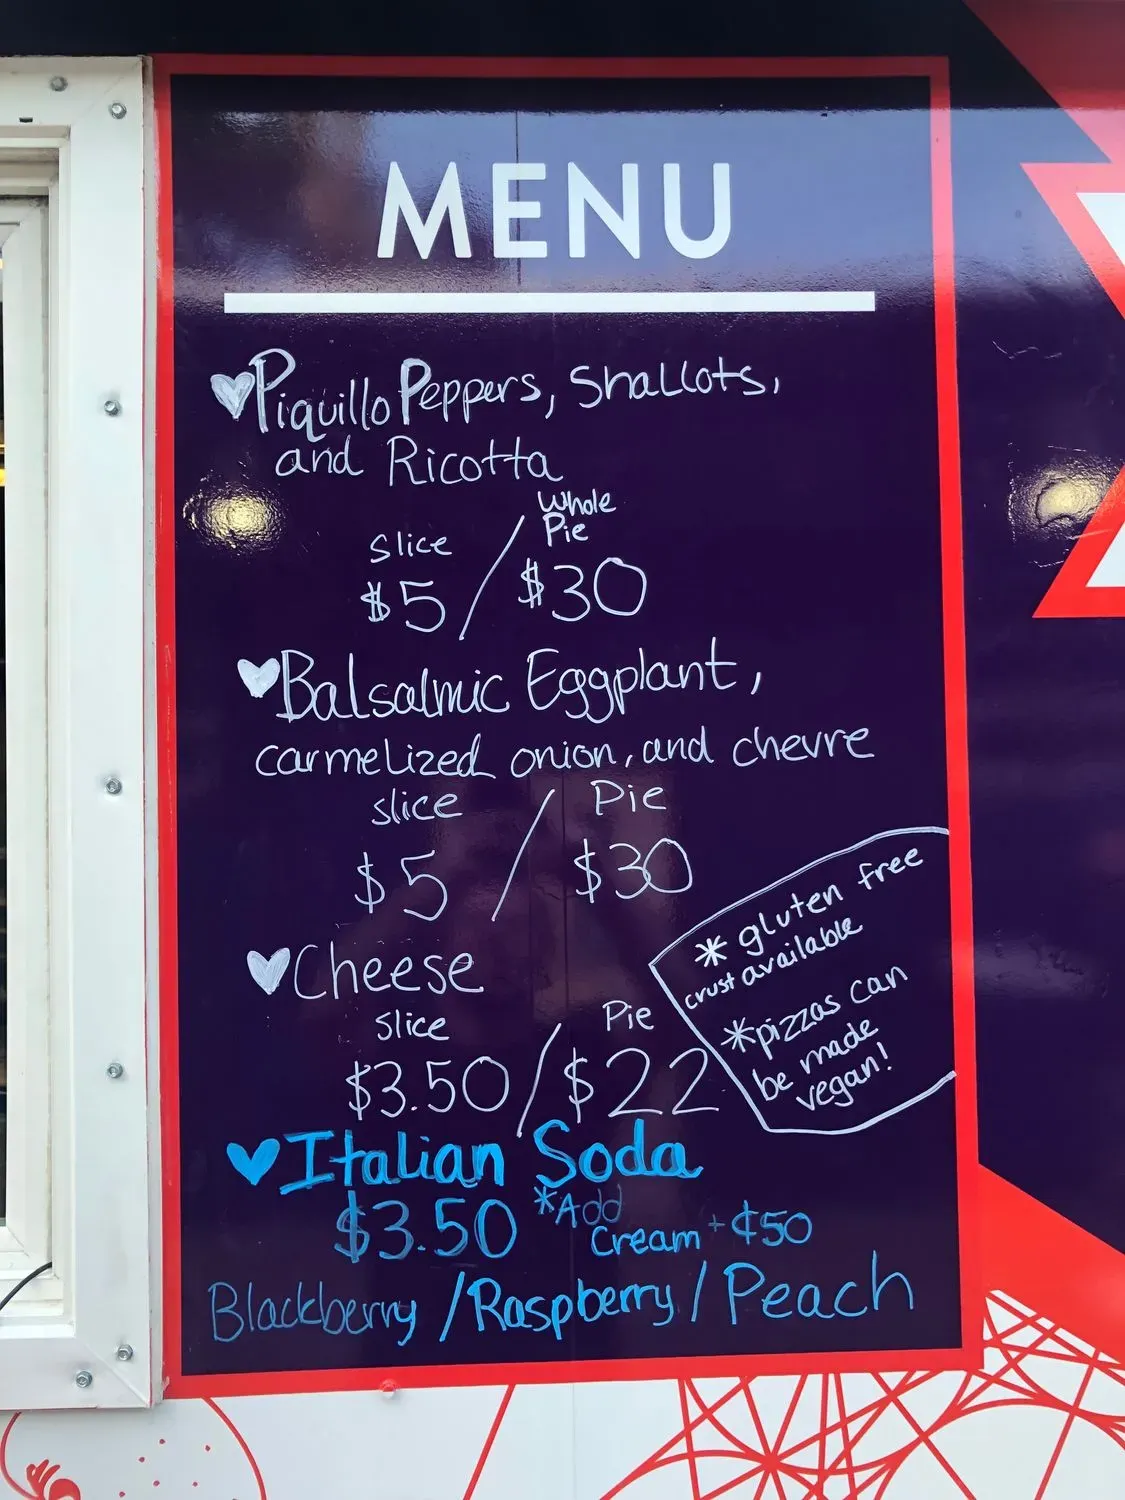 MENU
Piquillo Peppers, Shallots,
and Ricotta
Slice / Whole Pie
$5 / $30
Balsalmic Eggplant,
carmelized onion, and chevre
slice / Pie
$5 / $30
Cheese
slice / Pie
$3.50 / $22
* gluten free
crust available
* pizzas can
be made
vegan!
Italian Soda
$3.50 *Add Cream + ¢50
Blackberry / Raspberry / Peach